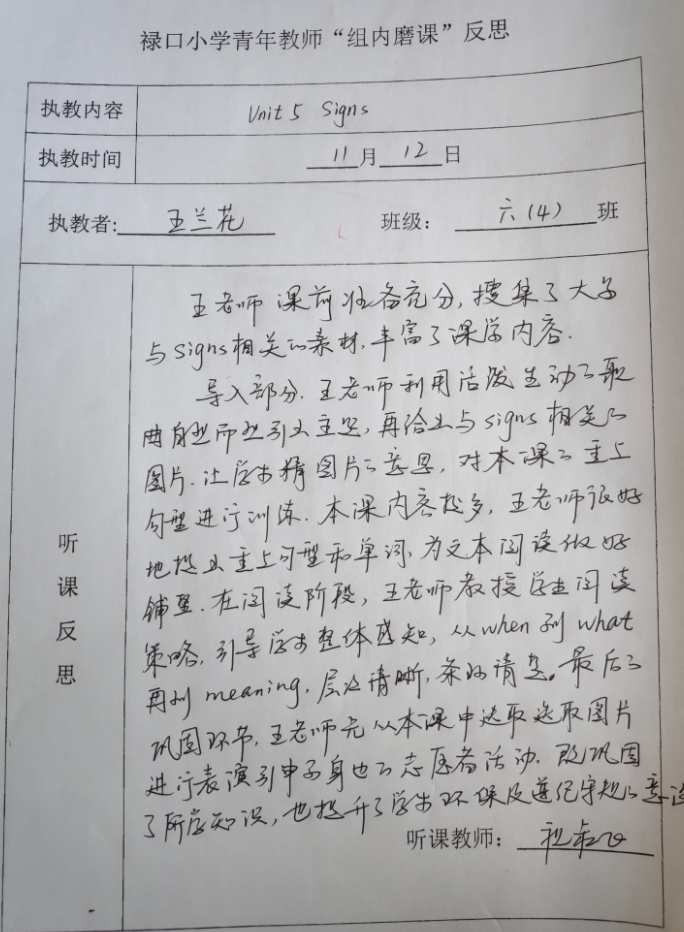 禄口小学青年教师“组内磨课”反思
执教内容 Unit 5 Signs
执教时间 11月12日
执教者:王兰花 班级:六(4)班
听课反思
王老师课前准备充分,搜集了大量
与signs相关的素材,丰富了课堂内容.
导入部分.王老师利用活泼生动的歌
曲自然而然引出主题,再给出与signs相关的
图片.让学生猜图片的意思,对本课的重点
句型进行训练.本课内容较多,王老师很好
地提出重点句型和单词,为文本阅读做好
铺垫.在阅读阶段,王老师教授学生阅读
策略,引导学生整体感知,从when到what
再到meaning,层次清晰,条理清楚。最后的
巩固环节,王老师先从本课中选取选取图片
进行表演引申到身边的志愿者活动.既巩固
了所学知识,也提升了学生环保及遵纪守规的意识
听课教师: